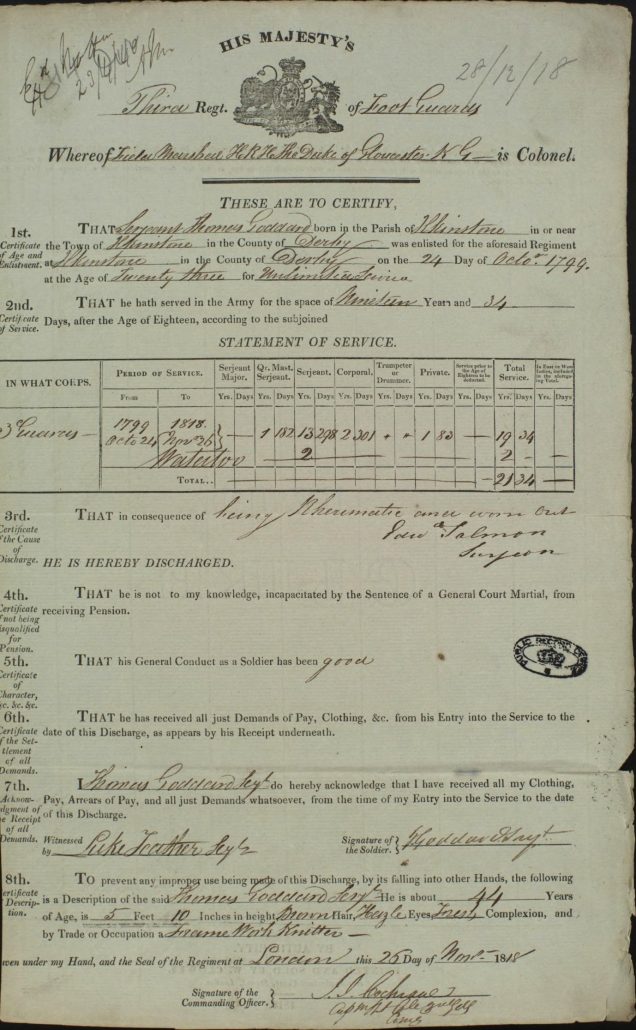 HIS MAJESTY'S
28/12/18
Third Regt. of Foot Guards
Whereof Field Marshal H R H The Duke of Gloucester K G is Colonel.
THESE ARE TO CERTIFY,
1st.
Certificate of Age and Enlistment.
THAT Serjeant Thomas Goddard born in the Parish of Ilkinstone in or near
the Town of Ilkinstone in the County of Derby was enlisted for the aforesaid Regiment
at Ilkinstone in the County of Derby on the 24 Day of Octor. 1799.
at the Age of Twenty three for Unlimited Service
2nd.
Certificate of Service.
THAT he hath served in the Army for the space of Nineteen Years and 34
Days, after the Age of Eighteen, according to the subjoined
STATEMENT OF SERVICE.
IN WHAT CORPS. PERIOD OF SERVICE. Serjeant Major. Qr. Mast. Serjeant. Serjeant. Corporal. Trumpeter or Drummer. Private. Service prior to the Age of Eighteen to be deducted. Total Service.
From To Yrs. Days Yrs. Days Yrs. Days Yrs. Days Yrs. Days Yrs. Days Yrs. Days Yrs. Days Yrs. Days
1799 1818
3 Guards Octo 24 Novr 26 1 182 13 298 2 301 1 83 19 34
Waterloo 2 2
TOTAL.. 21 34
3rd.
Certificate of the Cause of Discharge.
THAT in consequence of being Rheumatic and worn out
Edwd Salmon
Surgeon
HE IS HEREBY DISCHARGED.
4th.
Certificate of not being disqualified for Pension.
THAT he is not to my knowledge, incapacitated by the Sentence of a General Court Martial, from
receiving Pension.
5th.
Certificate of Character, &c. &c. &c.
THAT his General Conduct as a Soldier has been good
PUBLIC RECORD OFFICE
6th.
Certificate of the Settlement of all Demands.
THAT he has received all just Demands of Pay, Clothing, &c. from his Entry into the Service to the
date of this Discharge, as appears by his Receipt underneath.
7th.
Acknowledgment of the Receipt of all Demands.
I Thomas Goddard Serjt do hereby acknowledge that I have received all my Clothing,
Pay, Arrears of Pay, and all just Demands whatsoever, from the time of my Entry into the Service to the date
of this Discharge.
Witnessed by Luke Feather Serjt Signature of the Soldier. T Goddard Serjt
8th.
Certificate of Description.
TO prevent any improper use being made of this Discharge, by its falling into other Hands, the following
is a Description of the said Thomas Goddard Serjt He is about 44 Years
of Age, is 5 Feet 10 Inches in height, Brown Hair, Hazle Eyes, Fresh Complexion, and
by Trade or Occupation a Frame Work Knitter
Given under my Hand, and the Seal of the Regiment at London this 26 Day of Novr 1818
Signature of the Commanding Officer.